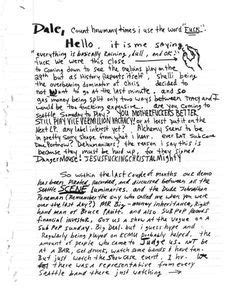 Dale, Count how many times i use the word Fuck.
Hello, it is me saying,
everything is basically raining, dull, and ok.
fuck we were this close
to coming down to see the melvins play on the
but as history repeats itself, Shelli being
the overbearing domineer of chris decided to
not want to go at the last minute, and so
gas money being split only two ways between TRACY and I
would be too fucking expensive. are you coming to
seattle someday to Play? YOU MOTHERFUCKERS BETTER
STILL PLAY VILE VERMILLION VACANCY or at least put it on the
next LP. any label interest yet? Alchemy seems to be
in pretty sorry shape from what i hear. ever eat Sub Corn
Dehumanizers? the reason i say this is
because they must be hard up, for they signed
Danger Mouse! JESUSFUCKINGCHRISTALMIGHTY
So within the last couple of months our demo
has been pirated, recorded, and discussed between all the
Seattle SCENE luminaries. and the Dude Jonathan
Poneman (Remember the guy who called me when you were
over the last day?) MR Big-money inheritance, Right
hand man of Bruce Pavitt. and also SUB POP Records
financial investor, Got us a show at the Vogue on a
SUB POP Sunday. Big Deal. but i guess hype and
regularly being played on KCMU probably helped, the
amount of people who came to Judge us, not be
at a BAR, get drunk, watch some bands & have fun
But just watch the showcase event. 1 hr.
there was a representative from every
seattle band there just watching